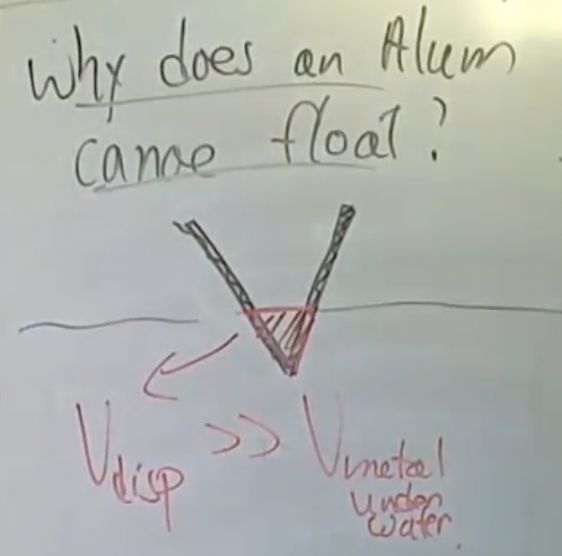 Why does an Alum
canoe float?
Vdisp >> Vmetal
under
water